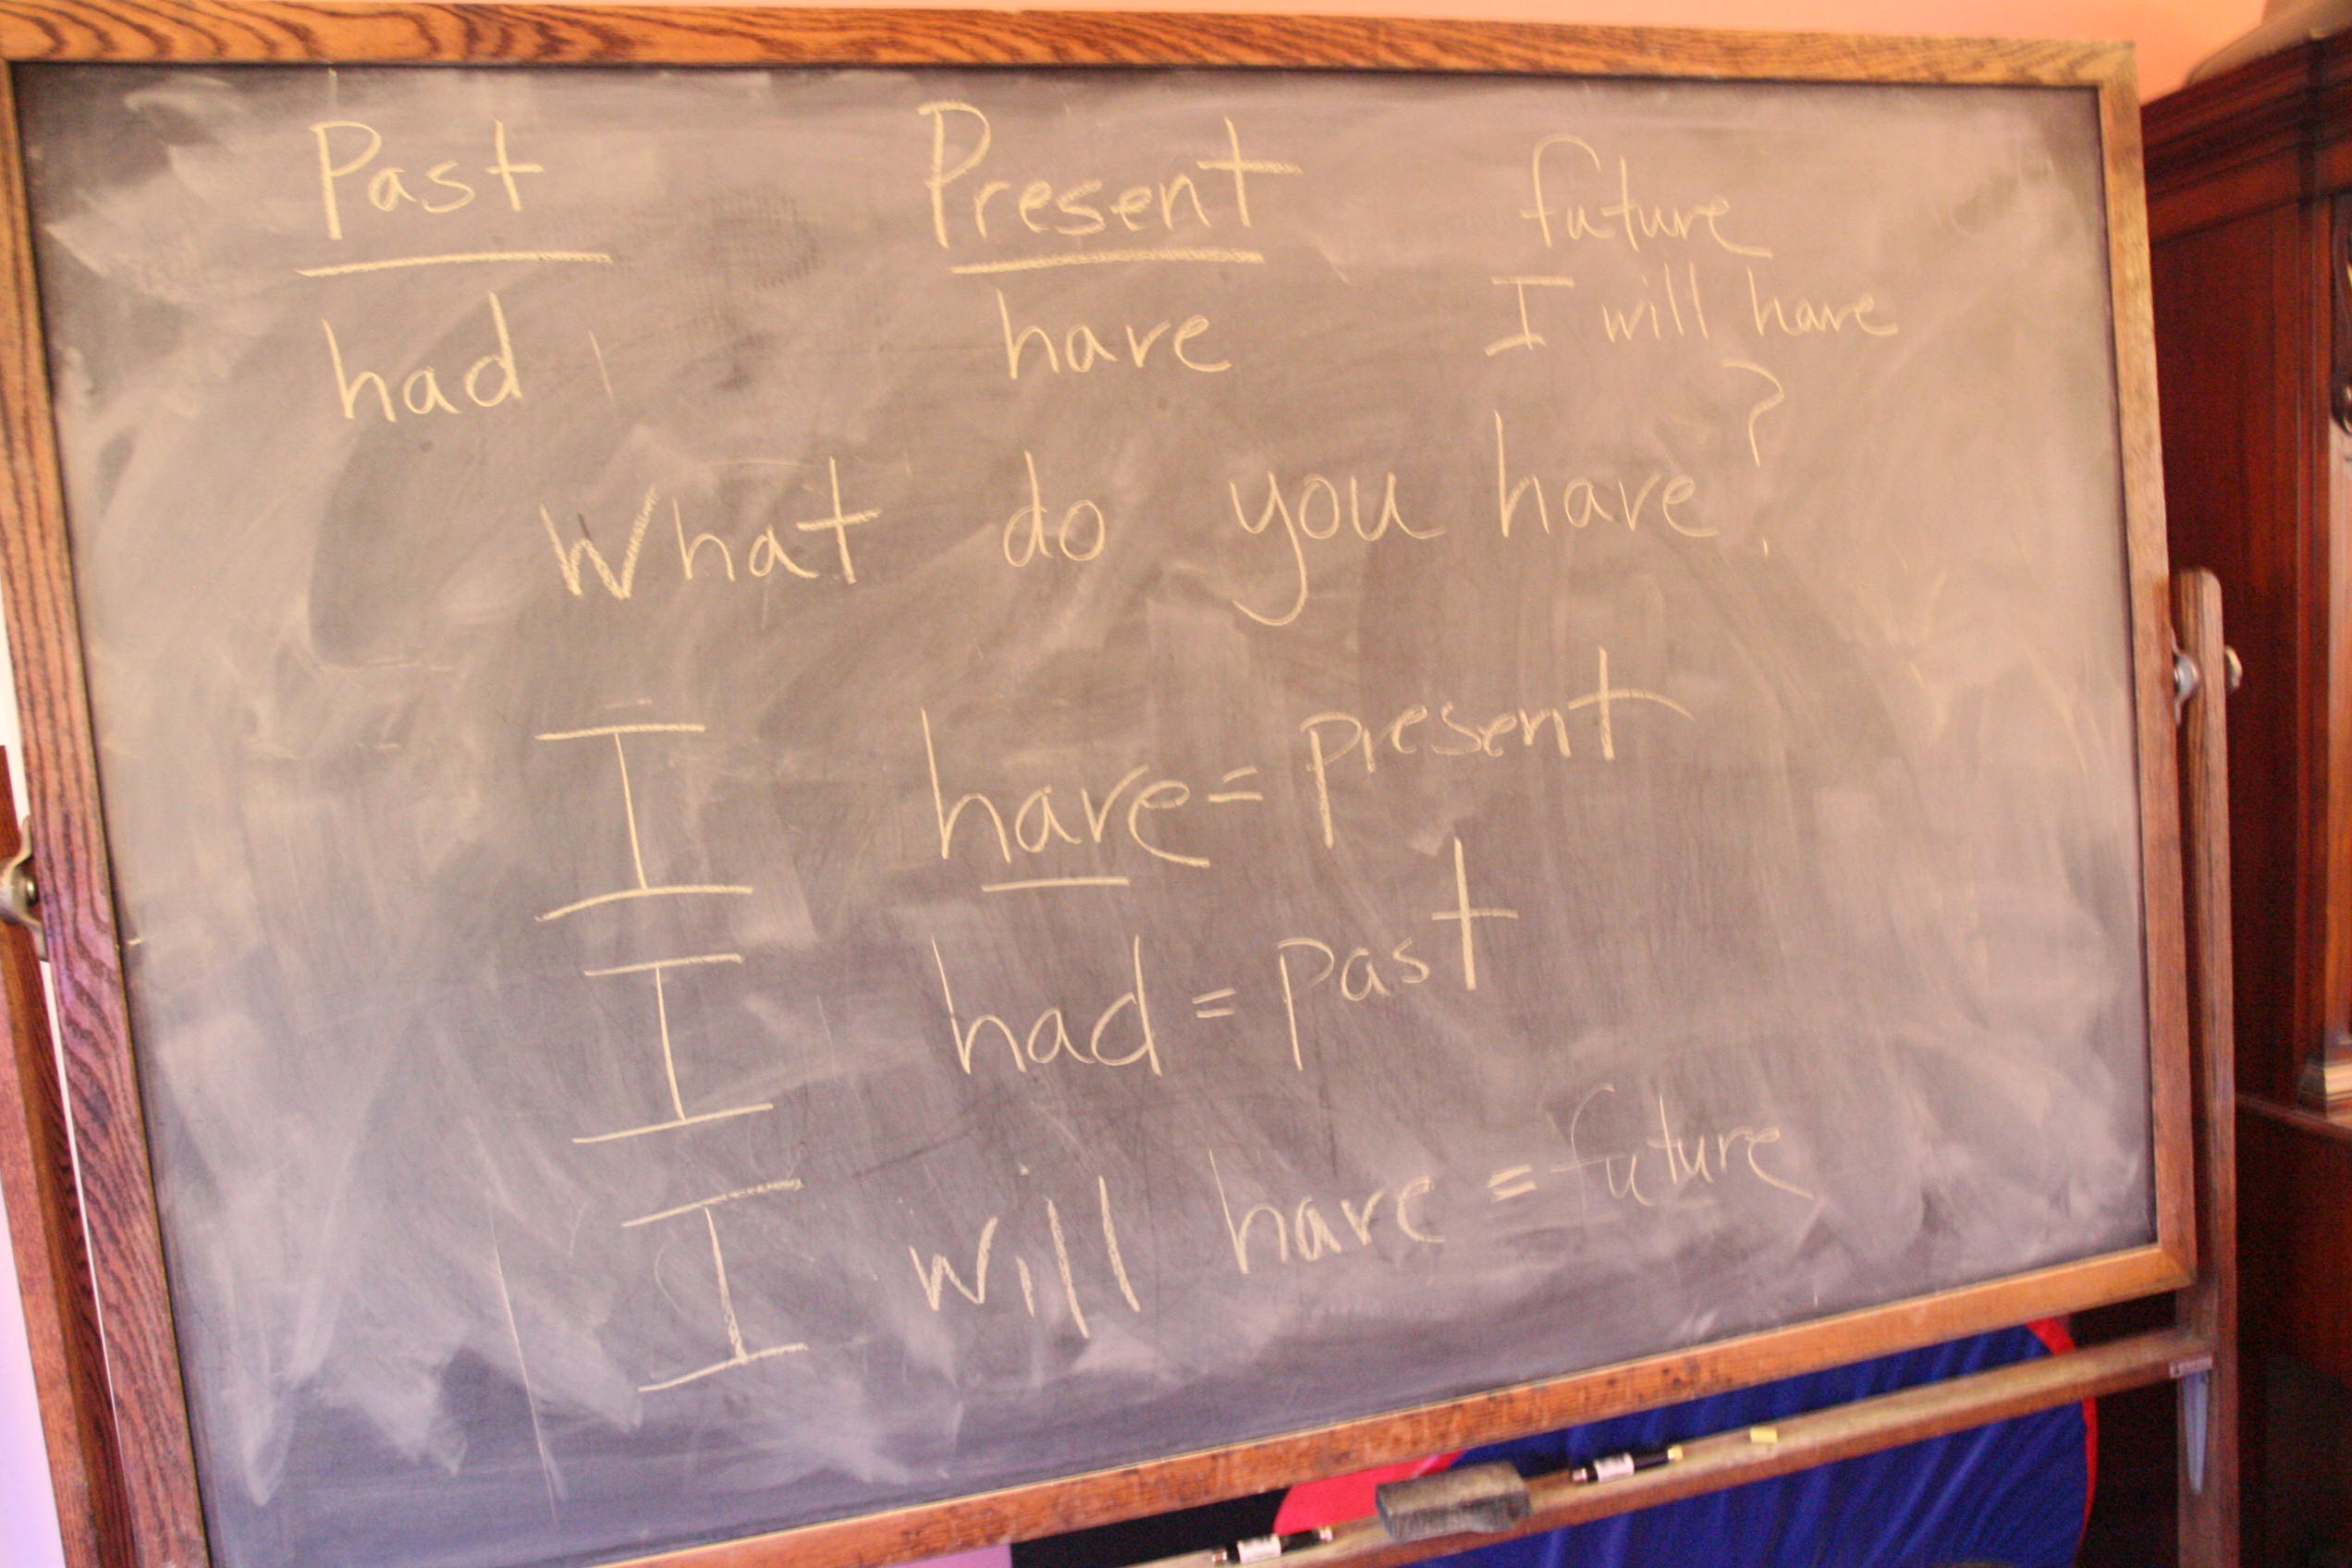 Past Present future
had have I will have
What do you have?
I have = present
I had = past
I will have = future